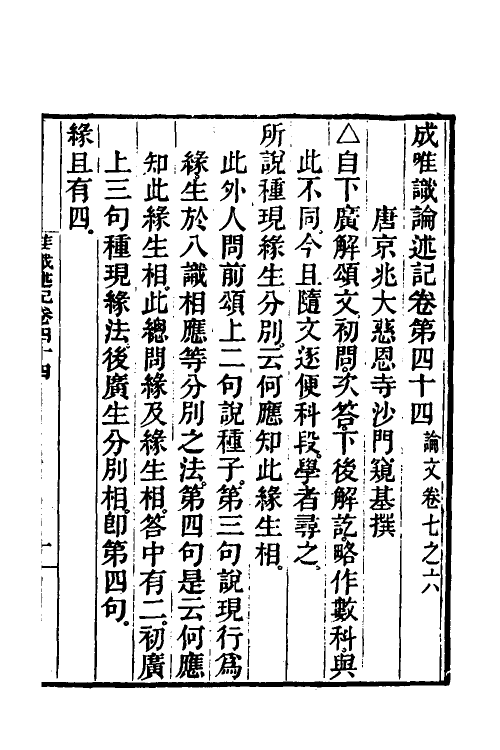 成唯識論述記卷第四十四 論文卷七之六
唐京兆大慈恩寺沙門窺基撰
△自下廣解頌文初問次答下後解訖略作數科與
此不同今且隨文逐便科段學者尋之
所說種現緣生分別云何應知此緣生相
此外人問前頌上二句說種子第三句說現行爲
緣生於八識相應等分別之法第四句是云何應
知此緣生相此總問緣及緣生相答中有二初廣
上三句種現緣法後廣生分別相卽第四句
緣且有四
唯識述記卷四十四 一